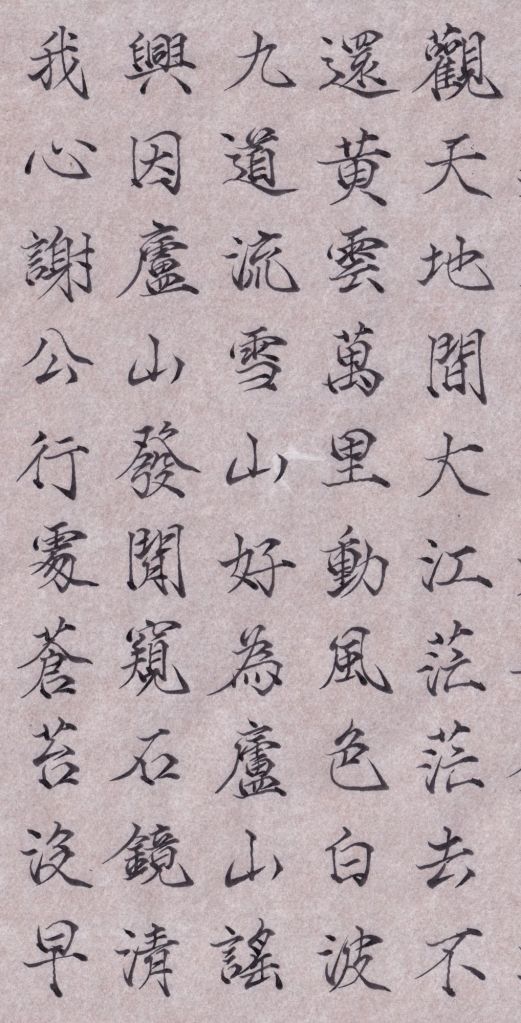 觀天地間大江茫茫去不
還黄雲萬里動風色白波
九道流雪山好為廬山謠
興因廬山發閒窺石鏡清
我心謝公行處蒼苔沒早